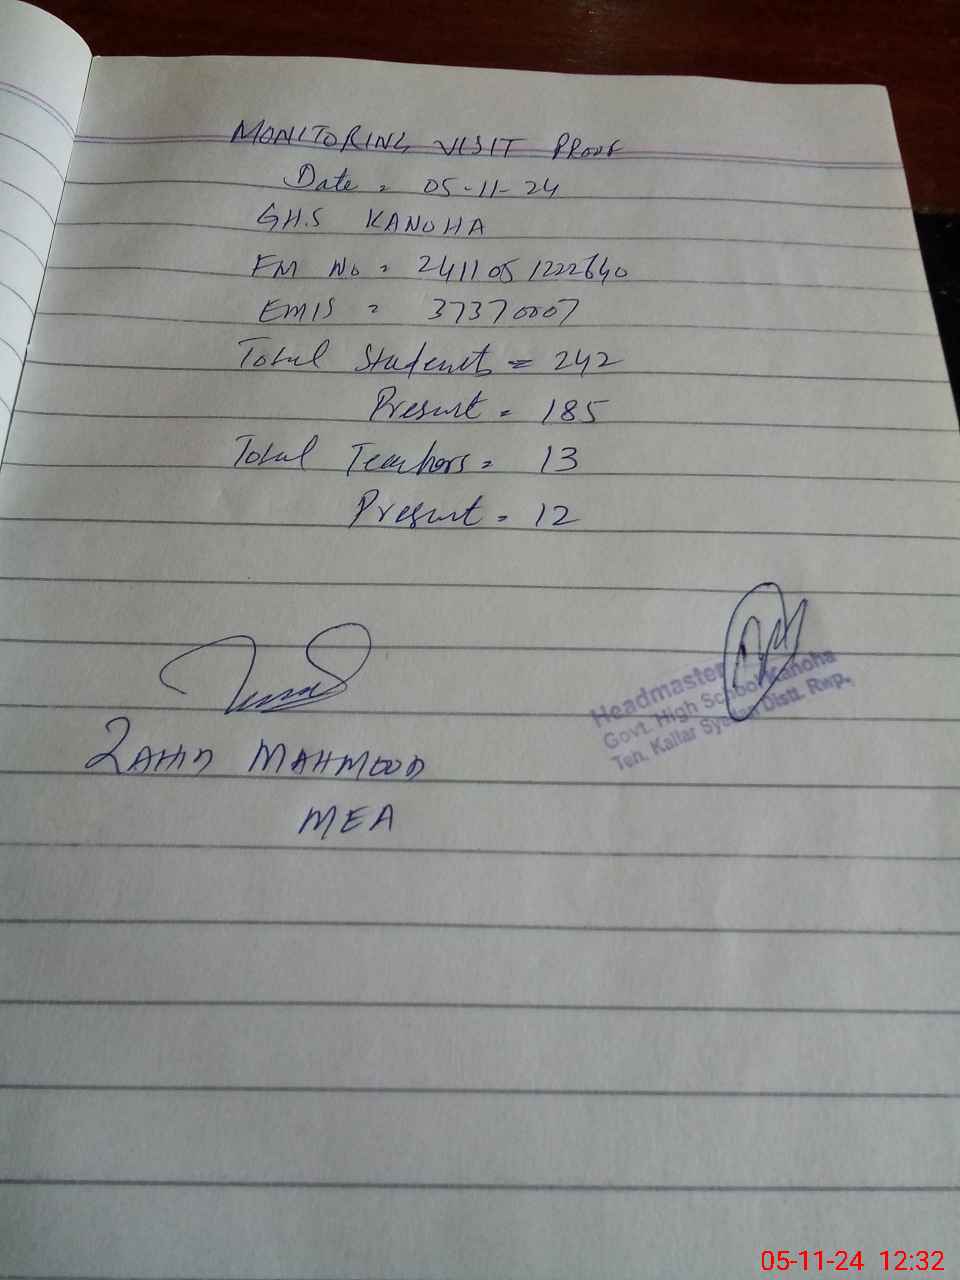 MONITORING VISIT PROOF
Date = 05-11-24
GHS KANOHA
FM No = 241105 1222640
EMIS = 37370007
Total Students = 242
Present = 185
Total Teachers = 13
Present = 12
ZAHID MAHMOOD
MEA
Headmaster
Govt. High School Kanoha
Teh. Kallar Syedan Distt. Rwp.
05-11-24 12:32